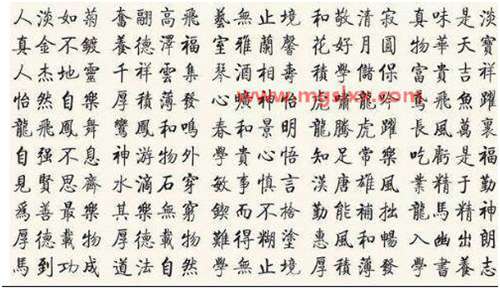 人淡如菊 奮翮高飛 藝無止境 和敬清寂 真味是淡
真金不鍍 養德澤福 室雅蘭馨 花好月圓 物華天寶
人杰地靈 千祥雲集 琴酒相壽 學儲 富貴吉祥
怡然自樂 厚積薄發 心曠神怡 虎 鳶飛魚躍
龍飛鳳舞 鸞鳳和鳴 春和景明 龍騰虎躍 長風萬裏
自强不息 神游物外 學貴心悟 知足常樂 吃虧是福
見賢思齊 水滴石穿 敏事慎言 漢唐雄風 業精于勤
爲善最樂 其樂無窮 鍥而不捨 勤能補拙 龍馬精神
厚德載物 厚德載物 難得糊塗 惠風和暢 入幽出朗
馬到功成 道法自然 學無止境 厚積薄發 學書養志
www.mgslxx.com